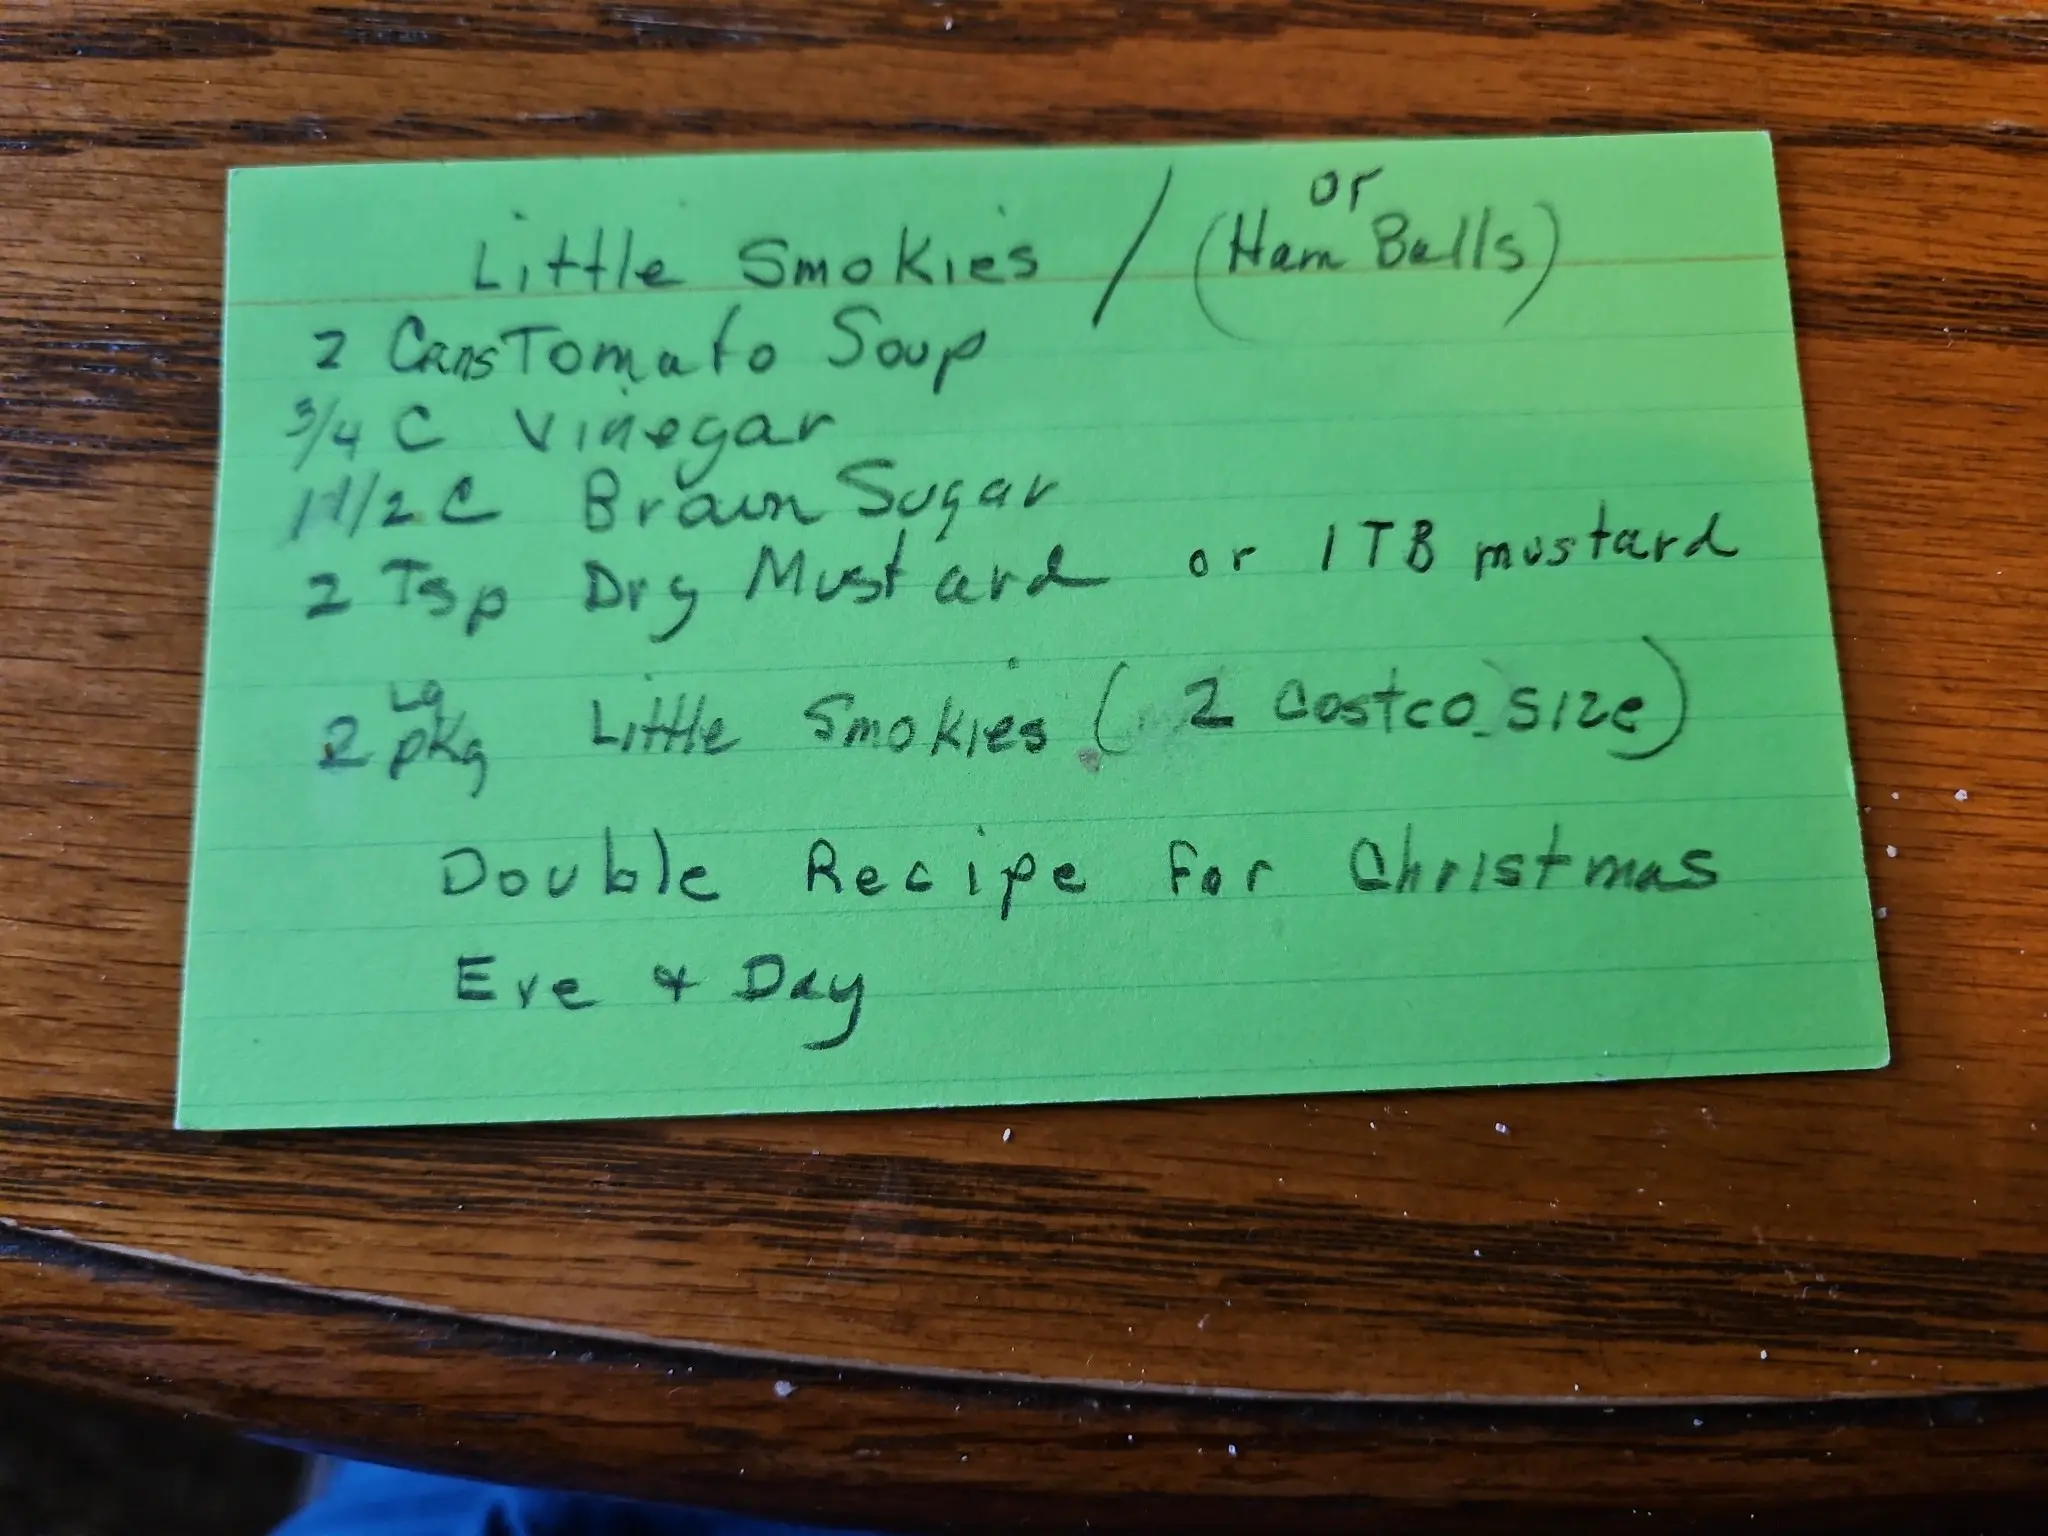 Little Smokies / (or Ham Balls)
2 Cans Tomato Soup
3/4 C Vinegar
1 1/2 C Brown Sugar
2 Tsp Dry Mustard or 1 TB mustard
2 Lg pkg Little Smokies (2 costco size)
Double Recipe for Christmas
Eve & Day